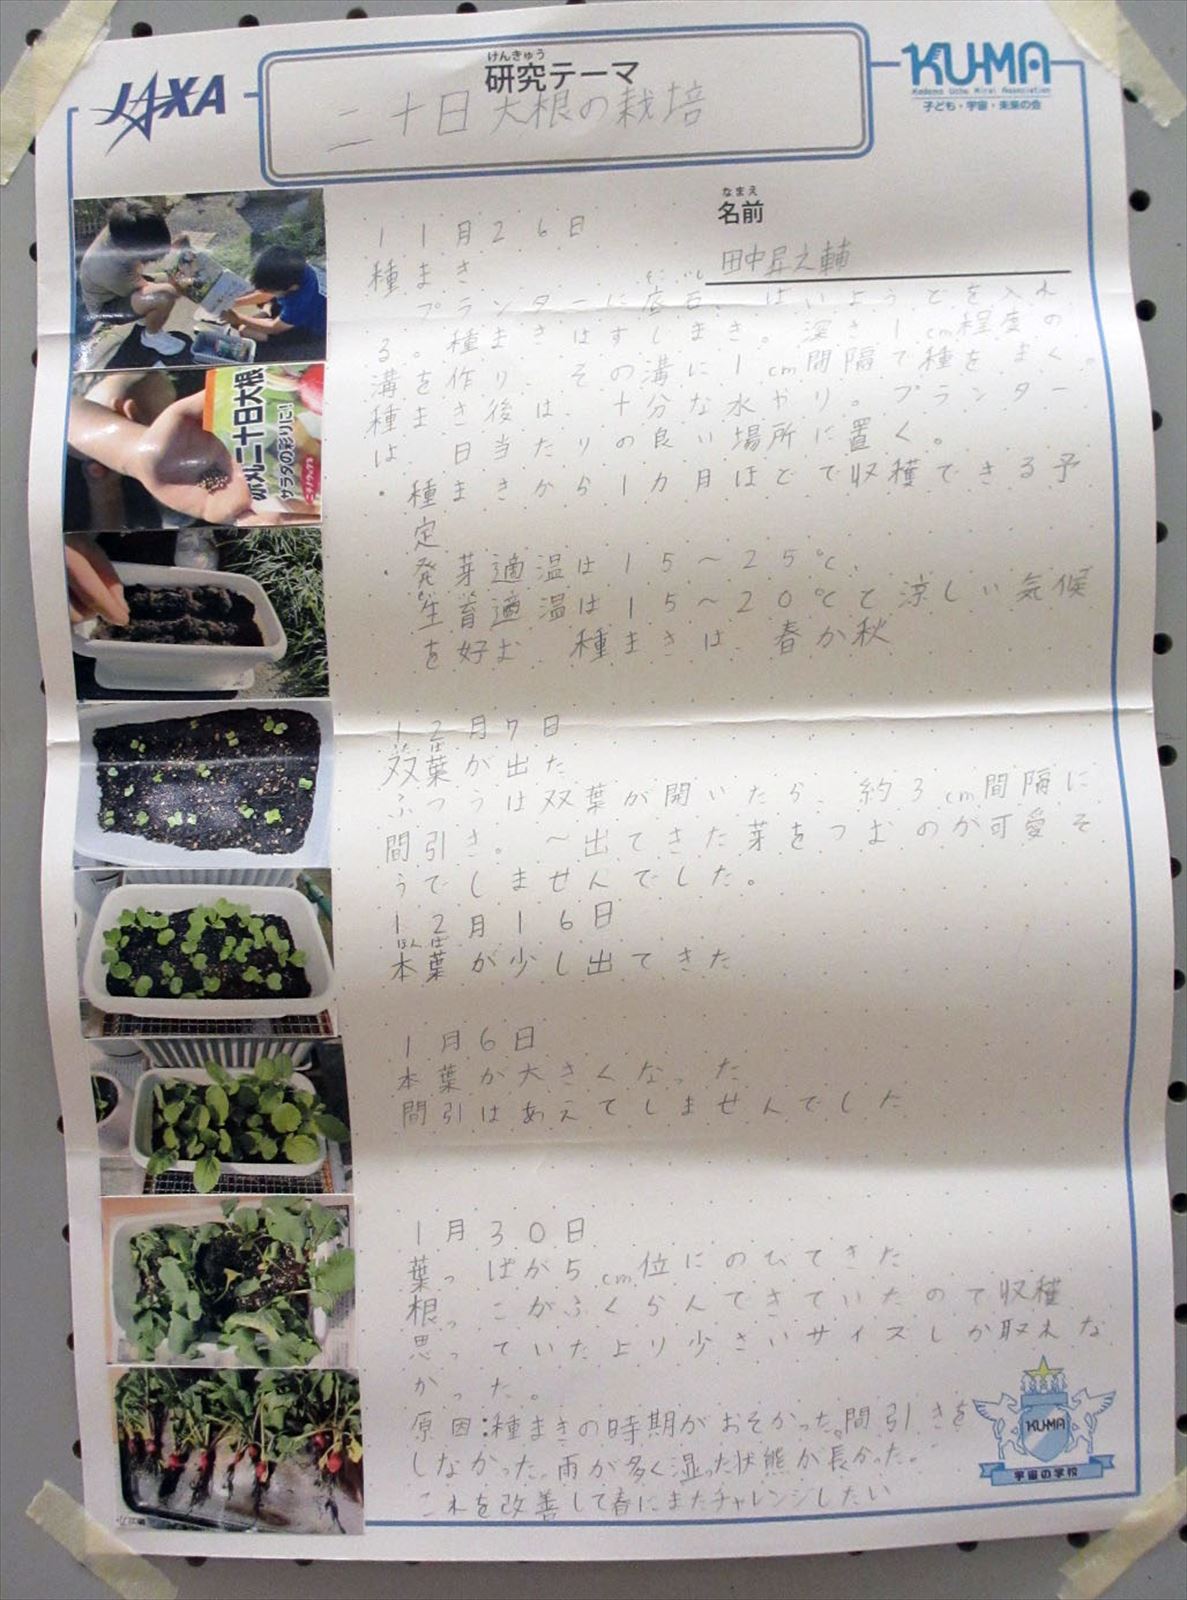 JAXA
けんきゅう
研究テーマ
二十日大根の栽培
KU-MA
Kodomo Uchu Mirai Association
子ども・宇宙・未来の会
なまえ
名前
田中昇之輔
11月26日
種まき
プランターに底石、ばいようどを入れ
る。種まきはすじまき。深さ1cm程度の
溝を作り、その溝に1cm間隔で種をまく。
種まき後は、十分な水やり。プランター
は、日当たりの良い場所に置く。
・種まきから1カ月ほどで収穫できる予
定
・発芽適温は15〜25℃、
生育適温は15〜20℃と涼しい気候
を好む、種まきは、春か秋
二十日大根
サラダの彩りに!
12月7日
双葉が出た
ふつうは双葉が開いたら、約3cm間隔に
間引き。〜出てきた芽をつむのが可愛そ
うでしませんでした。
12月16日
ほんば
本葉が少し出てきた
1月6日
本葉が大きくなった
間引はあえてしませんでした
1月30日
葉っぱが5cm位にのびてきた
根っこがふくらんできていたので収穫
思っていたより少さいサイズしか取れな
かった。
原因:種まきの時期がおそかった。間引きを
しなかった。雨が多く湿った状態が長かった。
これを改善して春にまたチャレンジしたい
KU-MA
宇宙の学校